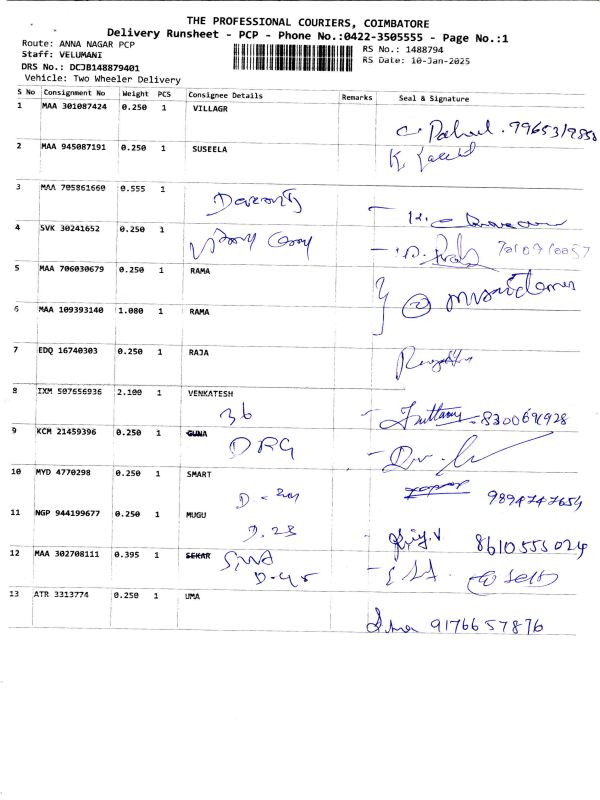 THE PROFESSIONAL COURIERS, COIMBATORE
Delivery Runsheet - PCP - Phone No.:0422-3505555 - Page No.:1
Route: ANNA NAGAR PCP
RS No.: 1488794
Staff: VELUMANI
RS Date: 10-Jan-2025
DRS No.: DCJB148879401
Vehicle: Two Wheeler Delivery
S No Consignment No Weight PCS Consignee Details Remarks Seal & Signature
1 MAA 301087424 0.250 1 VILLAGR
2 MAA 945087191 0.250 1 SUSEELA
K.
3 MAA 705861660 0.555 1
4 SVK 30241652 0.250 1
5 MAA 706030679 0.250 1 RAMA
6 MAA 109393140 1.080 1 RAMA
7 EDQ 16740303 0.250 1 RAJA
8 IXM 507656936 2.100 1 VENKATESH
36
9 KCM 21459396 0.250 1 GUNA
DRG
10 MYD 4770298 0.250 1 SMART
9894747654
11 NGP 944199677 0.250 1 MUGU
D.23 8610555024
12 MAA 302708111 0.395 1 SEKAR
D-45
13 ATR 3313774 0.250 1 UMA
Uma 9176657876